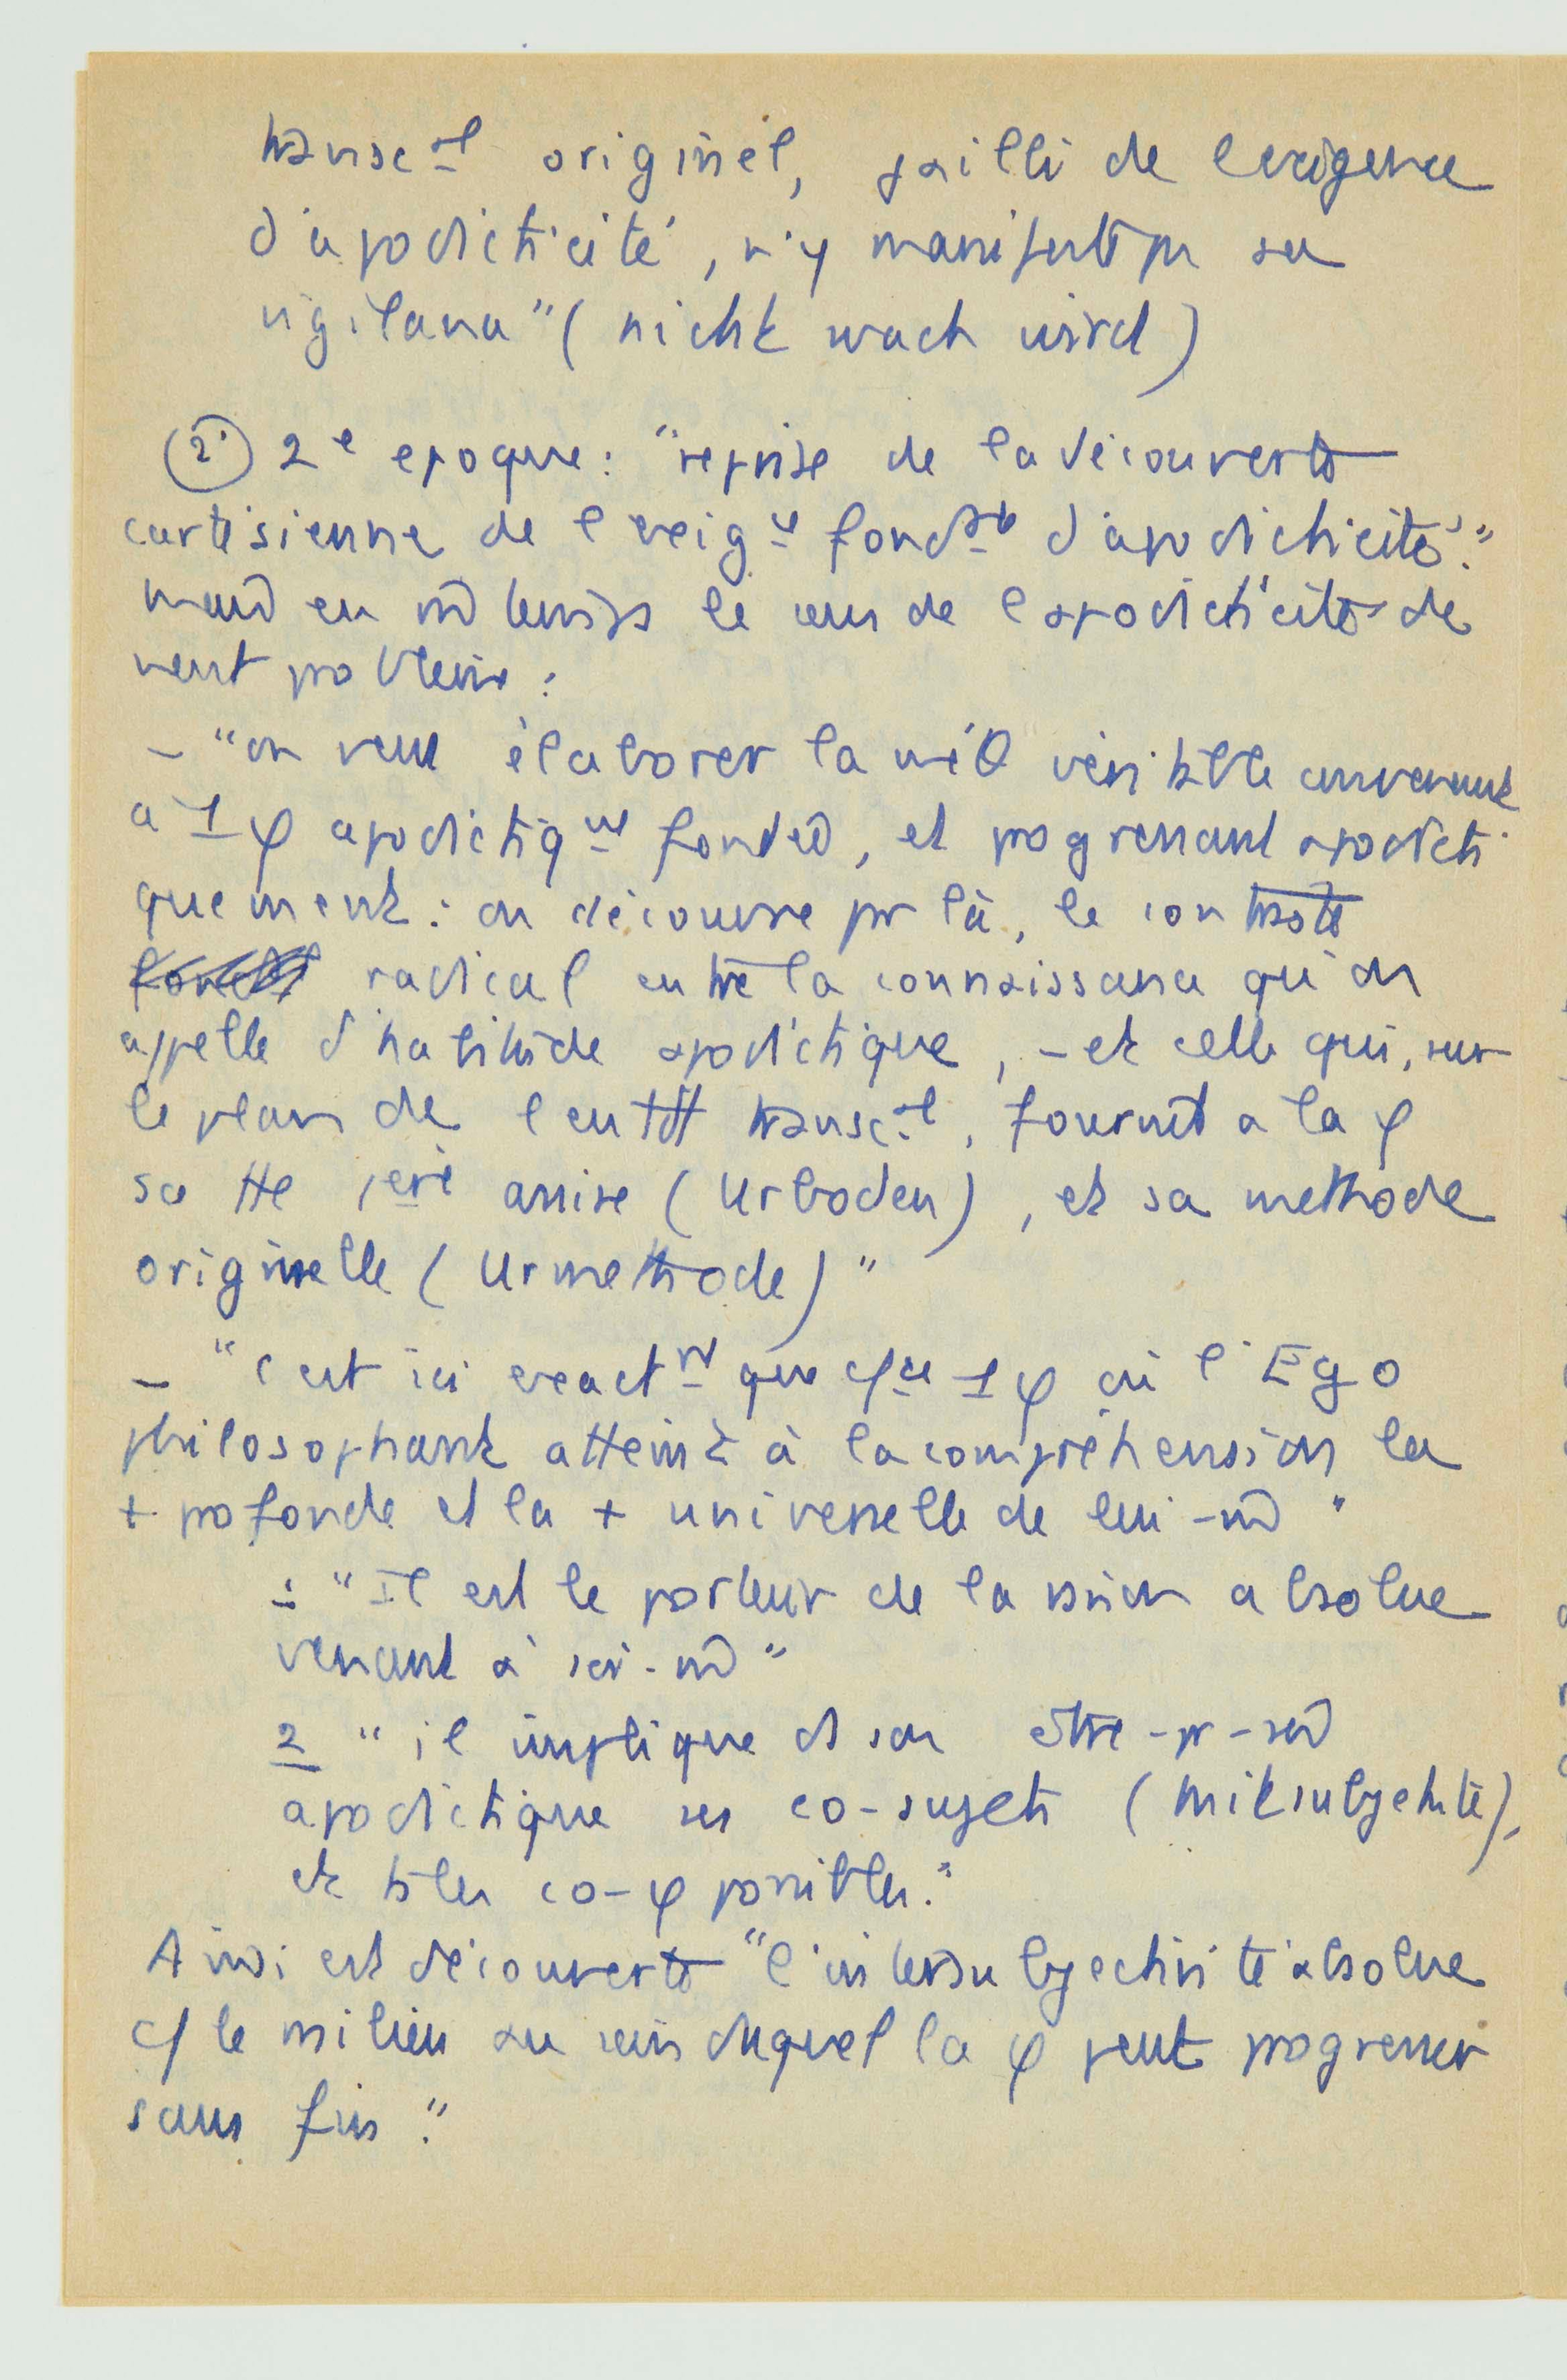 transc al originel, jailli de l'exigence
d'apodicticité, n'y manifeste pas sa
vigilance" (nicht wach wird)
(2°) 2e epoque: "reprise de la découverte
cartésienne de l'exig ce fond ale d'apodicticité."
en m̂ temps le sens de l'apodicticité de
vient problème :
– "on veut élaborer la méθ véritable convenant
a 1 φ apodictiq nt fondée, et progressant apodicti
quement : on découvre par là, le contraste
radical entre la connaissance qu'on
appelle d'habitude apodictique, – et celle qui, sur
le plan de l'entdt transc al, fournit a la φ
sa tte 1ere assise (Urboden), et sa methode
originelle (Urmethode)"
– "c'est ici exact nt que c/ce 1 φ où l'Ego
philosophant atteint à la compréhension la
+ profonde et la + universelle de lui-m̂"
: "Il est le porteur de la raison absolue
venant à soi-m̂"
2 "il implique ds son être-pr-soi
apodictique ses co-sujets (mitsubjekte),
et ts les co-φ possibles."
Ainsi est découverte "l'intersubjectivité absolue
c/ le milieu au sein duquel la φ peut progresser
sans fin."